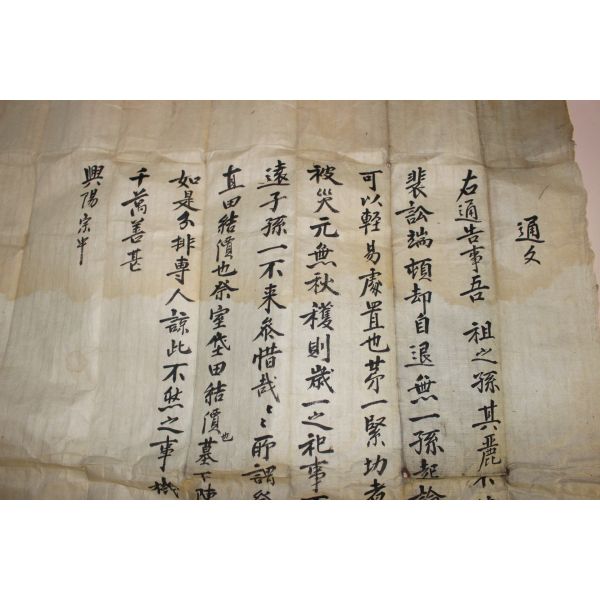 通文
右通告事吾 祖之孫其麗不
裴訟端頓却自退無一孫起論
可以輕易處置也第一緊功者
被災元無秋穫則歲一之祀事
遠子孫一不来叅惜哉〻所謂
直田結價也祭室垈田結價也墓下陳
如是多排專人諒此不然之事機
千萬善甚
興陽宗中